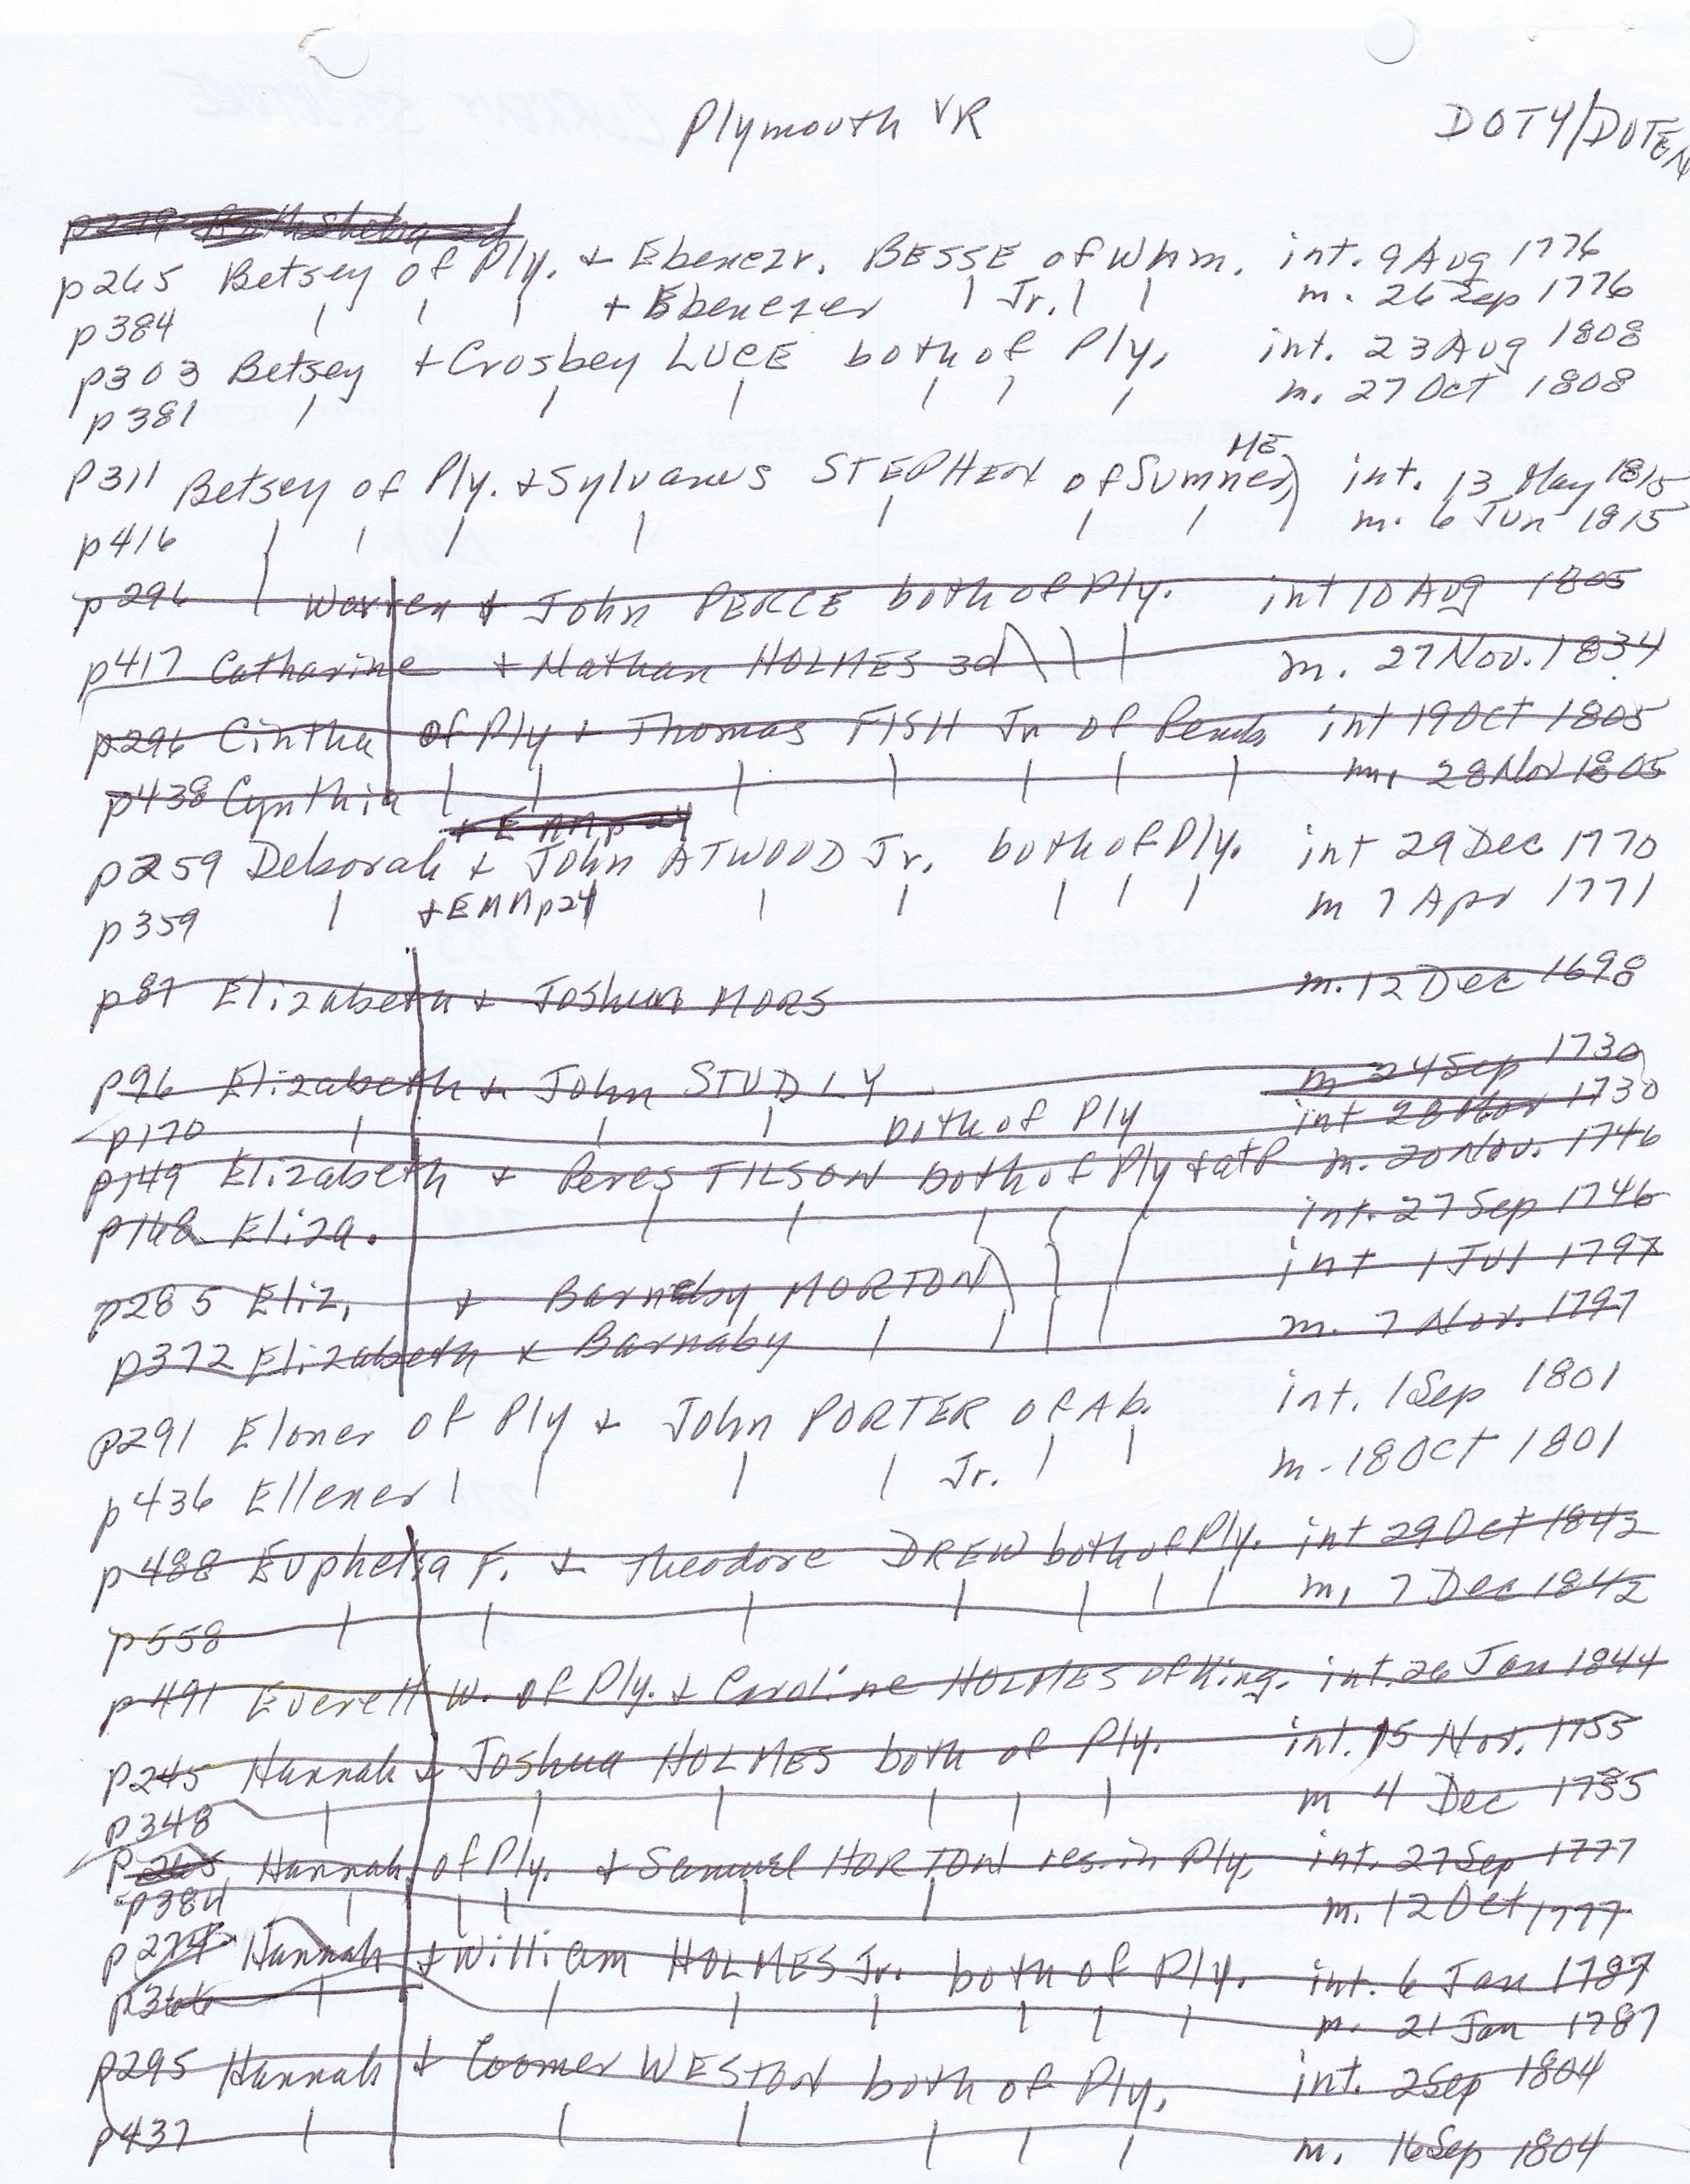 Plymouth VR DOTY/DOTEN
p265 Betsey of Ply. + Ebenezr. BESSE of Whm. int. 9 Aug 1776
p384 | | | + Ebenezer | Jr. | | m. 26 Sep 1776
p303 Betsey + Crosbey LUCE both of Ply, int. 23 Aug 1808
p381 | | | | | | m. 27 Oct 1808
p311 Betsey of Ply. + Sylvanus STEPHEN of Sumner, ME int. 13 May 1815
p416 | | | | | | | m. 6 Jun 1815
p296 | Warren + John PERCE both of Ply. int 10 Aug 1805
p417 Catharine + Nathan HOLMES 3d \ \ | m. 27 Nov. 1834
p296 Cintha of Ply + Thomas FISH Jr of int 19 Oct 1805
p438 Cynthia | | | | | | | m. 28 Nov 1805
+ EMM p24
p259 Deborah + John ATWOOD Jr. both of Ply. int 29 Dec 1770
p359 | + EMM p24 | | | | | m 7 Apr 1771
p87 Elizabeth + Joshua MORS m. 12 Dec 1698
p96 Elizabeth + John STUDLY m 24 Sep 1730
p170 | | | both of Ply int 28 1730
p149 Elizabeth + Peres TILSON both of Ply + at P m. 20 Nov. 1746
p168 Eliza. | | | | | int. 27 Sep 1746
p285 Eliz, + Barnaby MORTON ) ) | int 1 Jul 1797
p372 Elizabeth + Barnaby | | | | m. 7 Nov. 1797
p291 Eloner of Ply + John PORTER of Ab. int. 1 Sep 1801
p436 Ellener | | | | Jr. | | m. 18 Oct 1801
p488 Euphelia F. + Theodore DREW both of Ply. int 29 Oct 1842
p558 | | | | | | | m, 7 Dec 1842
p491 Everett W. of Ply. + Caroline HOLMES of King. int. 26 Jan 1844
p245 Hannah + Joshua HOLMES both of Ply. int. 15 Nov. 1755
p348 | | | | | | m 4 Dec 1755
p265 Hannah of Ply. + Samuel HORTON res. in Ply, int. 27 Sep 1777
p384 | | | | | m. 12 Oct 1777
p274 Hannah + William HOLMES Jr. both of Ply. int. 6 Jan 1787
p366 | | | | | | | m. 21 Jan 1787
p295 Hannah + Coomer WESTON both of Ply, int. 2 Sep 1804
p437 | | | | | | m. 16 Sep 1804